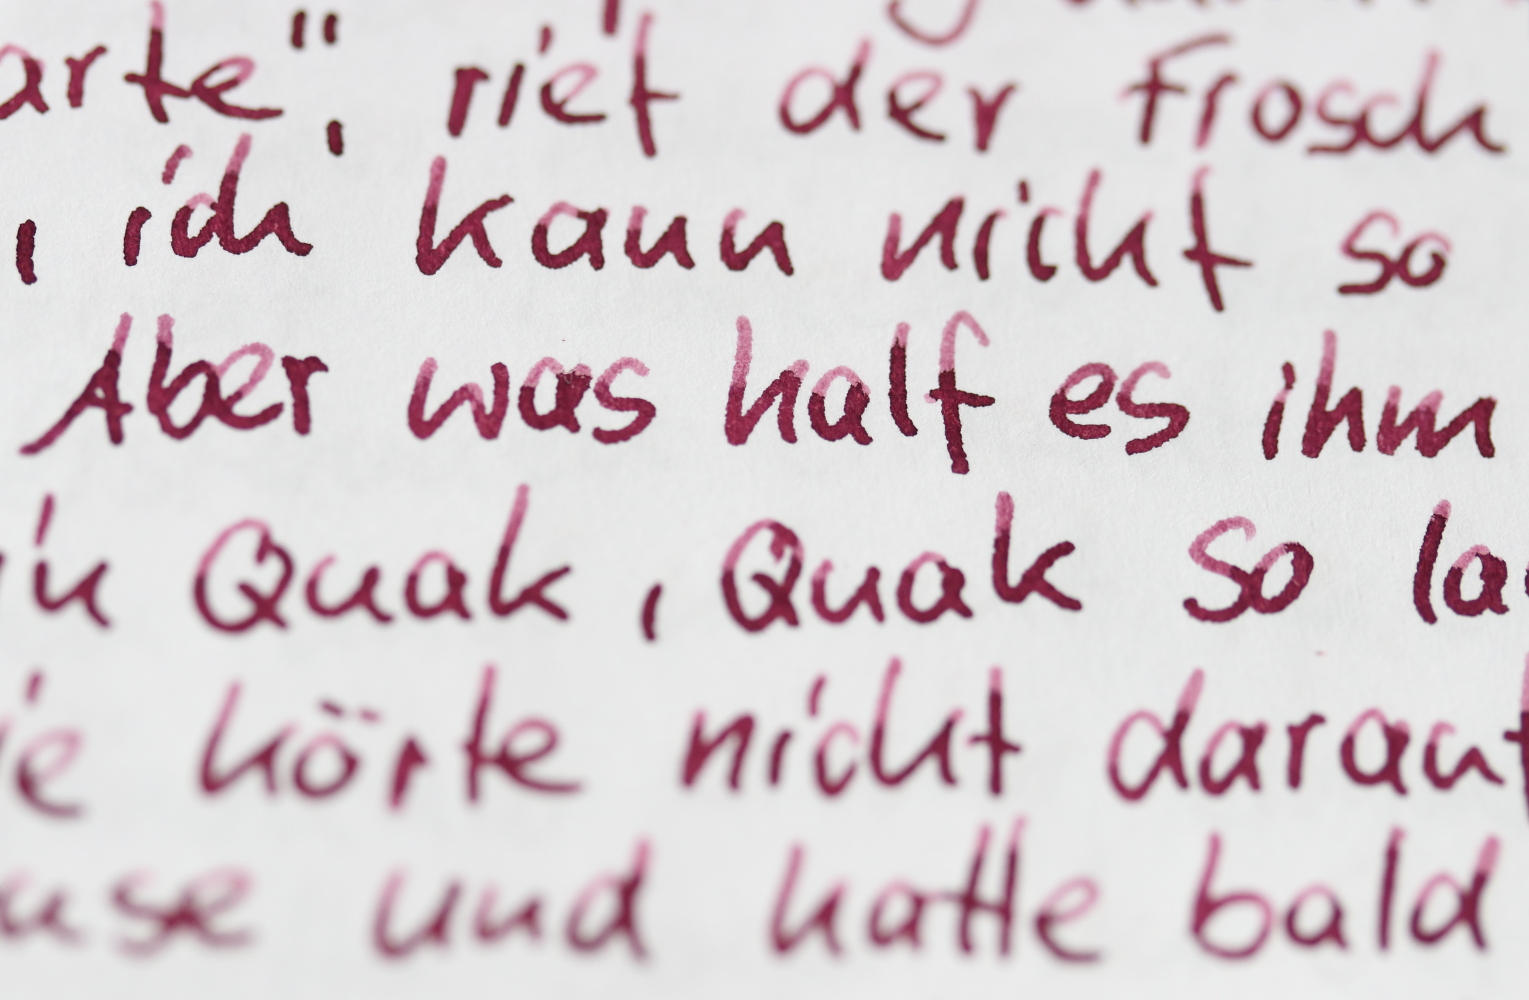 arte", rief der Frosch
, ich kann nicht so
Aber was half es ihm
Quak, Quak so
hörte nicht darauf
und hatte bald